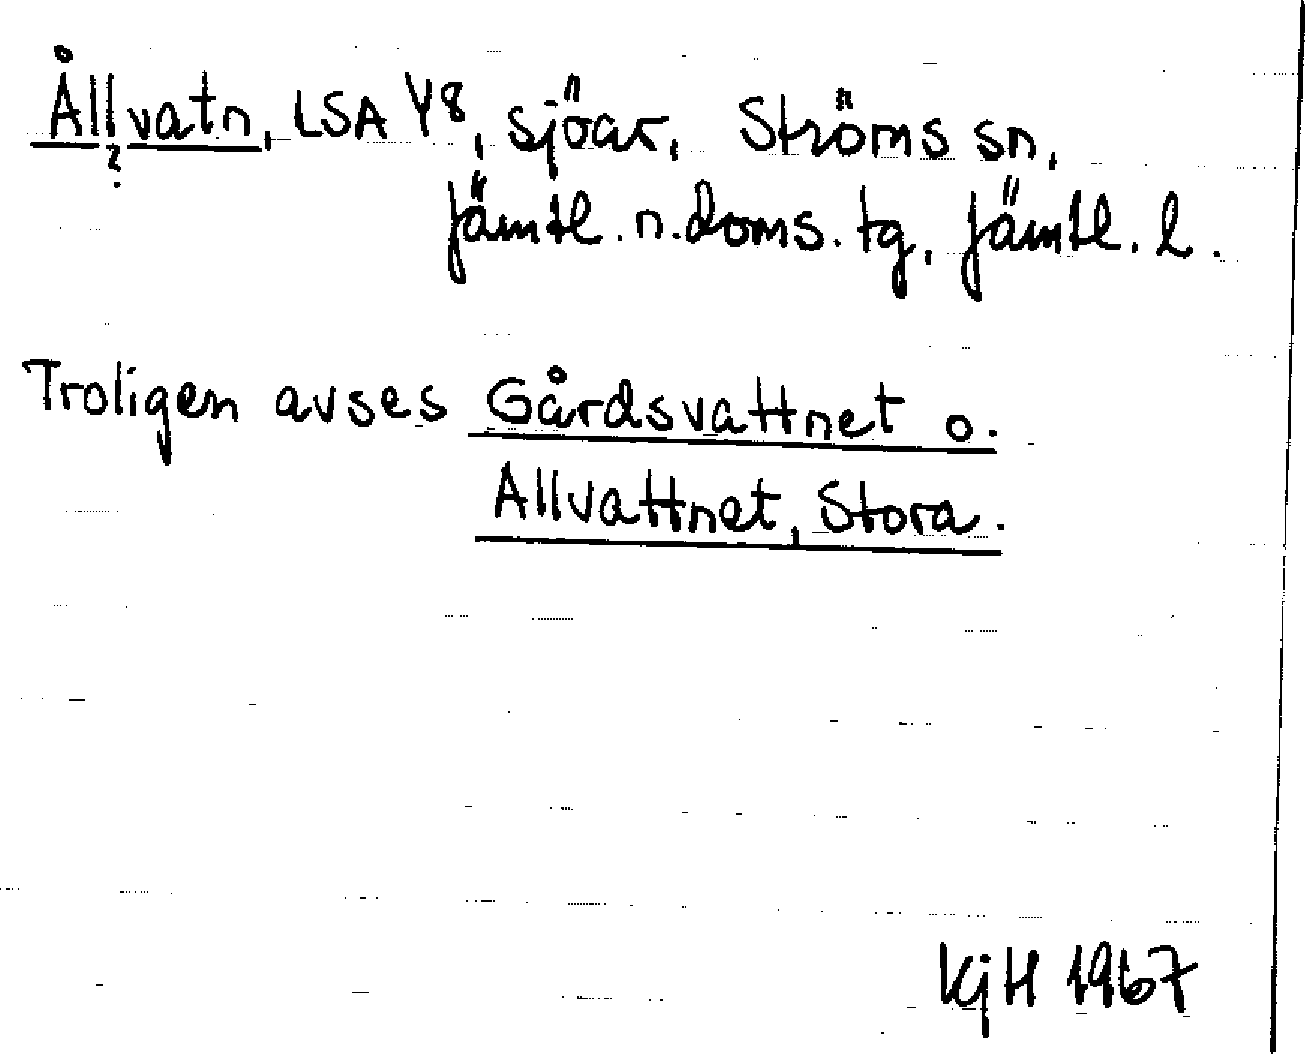 Ållvatn, LSA Y8, sjöar, Ströms sn,
?
Jämtl. n. doms. tg, Jämtl. l.
Troligen avses Gårdsvattnet o.
Allvattnet, Stora.
KjH 1967